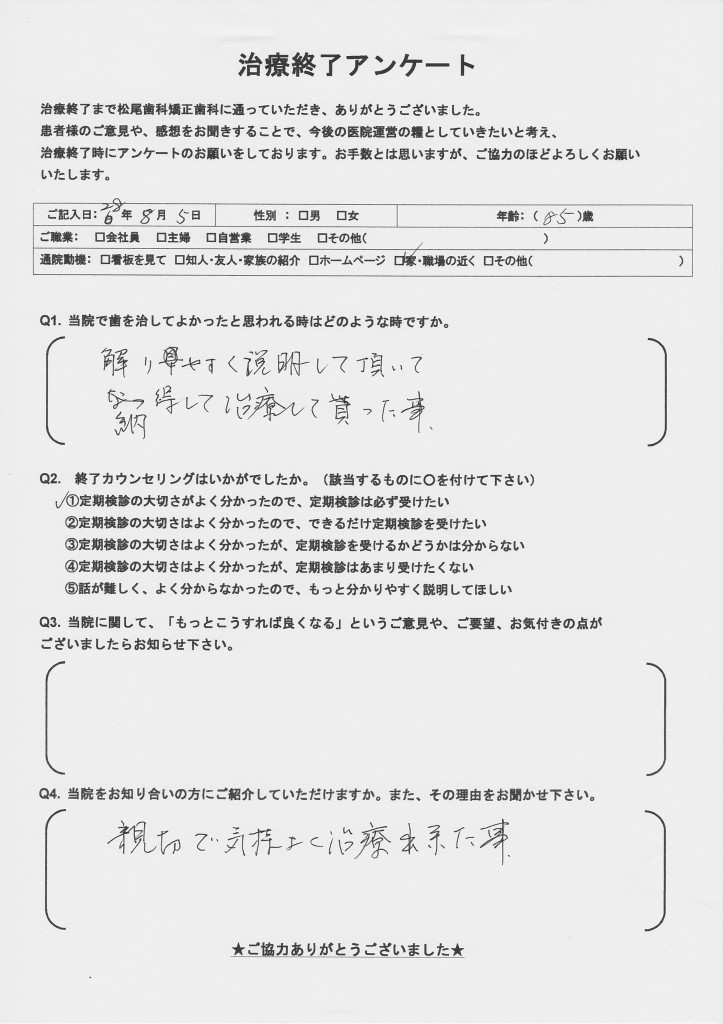 治療終了アンケート
治療終了まで松尾歯科矯正歯科に通っていただき、ありがとうございました。
患者様のご意見や、感想をお聞きすることで、今後の医院運営の糧としていきたいと考え、
治療終了時にアンケートのお願いをしております。お手数とは思いますが、ご協力のほどよろしくお願い
いたします。
ご記入日: 28年 8月 5日 性別 : □男 □女 年齢:( 85 )歳
ご職業: □会社員 □主婦 □自営業 □学生 □その他( )
通院動機: □看板を見て □知人・友人・家族の紹介 □ホームページ ☑家・職場の近く □その他( )
Q1. 当院で歯を治してよかったと思われる時はどのような時ですか。
解りやすく説明して頂いて
納得して治療して貰った事.
Q2. 終了カウンセリングはいかがでしたか。(該当するものに〇を付けて下さい)
✓①定期検診の大切さがよく分かったので、定期検診は必ず受けたい
②定期検診の大切さはよく分かったので、できるだけ定期検診を受けたい
③定期検診の大切さはよく分かったが、定期検診を受けるかどうかは分からない
④定期検診の大切さはよく分かったが、定期検診はあまり受けたくない
⑤話が難しく、よく分からなかったので、もっと分かりやすく説明してほしい
Q3. 当院に関して、「もっとこうすれば良くなる」というご意見や、ご要望、お気付きの点が
ございましたらお知らせ下さい。
Q4. 当院をお知り合いの方にご紹介していただけますか。また、その理由をお聞かせ下さい。
親切で気持よく治療出来た事.
★ご協力ありがとうございました★